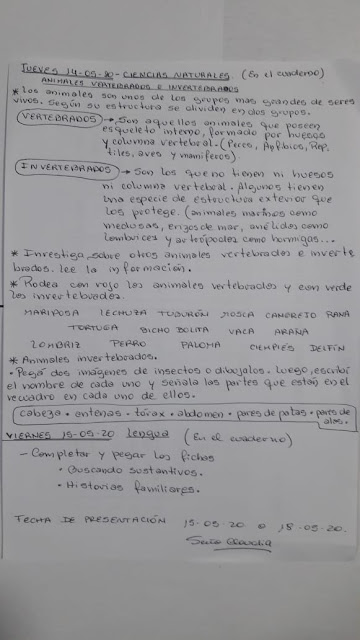 JUEVES 14-05-20 - CIENCIAS NATURALES. (En el cuaderno)
ANIMALES VERTEBRADOS E INVERTEBRADOS
* Los animales son unos de los grupos mas grandes de seres
vivos. Según su estructura se dividen en dos grupos.
VERTEBRADOS → Son aquellos animales que poseen
esqueleto interno, formado por huesos
y columna vertebral. (Peces, Anfibios, Rep
tiles, aves y mamíferos).
INVERTEBRADOS → Son los que no tienen ni huesos
ni columna vertebral. Algunos tienen
una especie de estructura exterior que
los protege. (animales marinos como
medusas, erizos de mar, anélidos como
lombrices y artrópodos como hormigas...
* Investiga sobre otros animales vertebrados e inverte
brados. lee la información.
* Rodea con rojo los animales vertebrados y con verde
los invertebrados.
MARIPOSA LECHUZA TUBURÓN MOSCA CANGREJO RANA
TORTUGA BICHO BOLITA VACA ARAÑA
LOMBRIZ PERRO PALOMA CIEMPIÉS DELFÍN
* Animales invertebrados.
• Pegá dos imágenes de insectos o dibujalos. Luego, escribí
el nombre de cada uno y señala las partes que están en el
recuadro en cada uno de ellos.
cabeza • antenas • tórax • abdomen • pares de patas • pares de
alas.
VIERNES 15-05-20 Lengua (En el cuaderno)
- Completar y pegar las fichas
• Buscando sustantivos.
• Historias familiares.
FECHA DE PRESENTACIÓN 15-05-20 o 18-05-20.
Seño Claudia